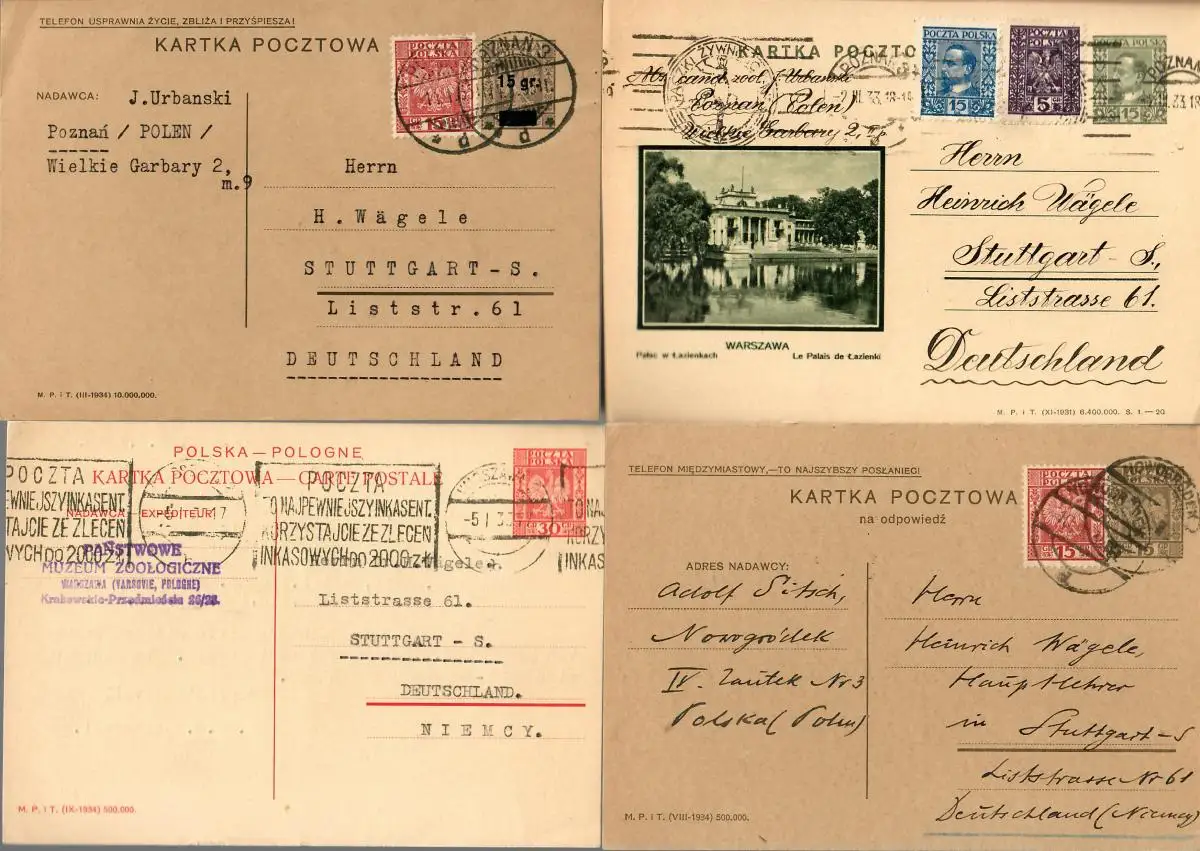 TELEFON USPRAWNIA ŻYCIE, ZBLIŻA I PRZYŚPIESZA!
KARTKA POCZTOWA
POCZTA
POLSKA
15
POZNAŃ 3
15 gr.
d
d
NADAWCA: J.Urbanski
Poznań / POLEN /
Wielkie Garbary 2,
m.9
Herrn
H. Wägele
STUTTGART-S.
Liststr. 61
DEUTSCHLAND
M. P. i T. (III-1934) 10.000.000.
KARTKA POCZTO
POCZTA POLSKA
15
POCZTA
POLSKA
5
15
POZNAŃ
2. III. 33. 18-19
POZNAŃ
Abs. cand. zool. J. Urbanski
Poznań (Polen)
Wielkie Garbary 2, m. 9
Herrn
Heinrich Wägele
Stuttgart - S.,
Liststrasse 61.
Deutschland
WARSZAWA
Pałac w Łazienkach
Le Palais de Łazienki
M. P. i T. (XI-1931) 6.400.000. S. 1. — 20
POLSKA — POLOGNE
KARTKA POCZTOWA — CARTE POSTALE
POCZTA
POLSKA
30
NADAWCA EXPÉDITEUR
POCZTA
TO NAJPEWNIEJSZY INKASENT.
KORZYSTAJCIE ZE ZLECEŃ
INKASOWYCH DO 2000 ZŁ
PAŃSTWOWE
MUZEUM ZOOLOGICZNE
WARSZAWA (VARSOVIE, POLOGNE)
Krakowskie-Przedmieście 26/28.
Wägele
Liststrasse 61.
STUTTGART - S.
DEUTSCHLAND.
NIEMCY.
M. P. i T. (IX-1934) 500.000.
TELEFON MIĘDZYMIASTOWY,—TO NAJSZYBSZY POSŁANIEC!
KARTKA POCZTOWA
na odpowiedź
POCZTA
POLSKA
15
15
NOWOGRÓDEK
ADRES NADAWCY:
Adolf Sitsch,
Nowogródek
IV. Zaułek Nr 3
Polska (Polen)
Herrn
Heinrich Wägele,
Hauptlehrer
in Stuttgart-S
Liststrasse Nr 61
Deutschland (Niemcy)
M. P. i T. (VIII-1934) 500.000.